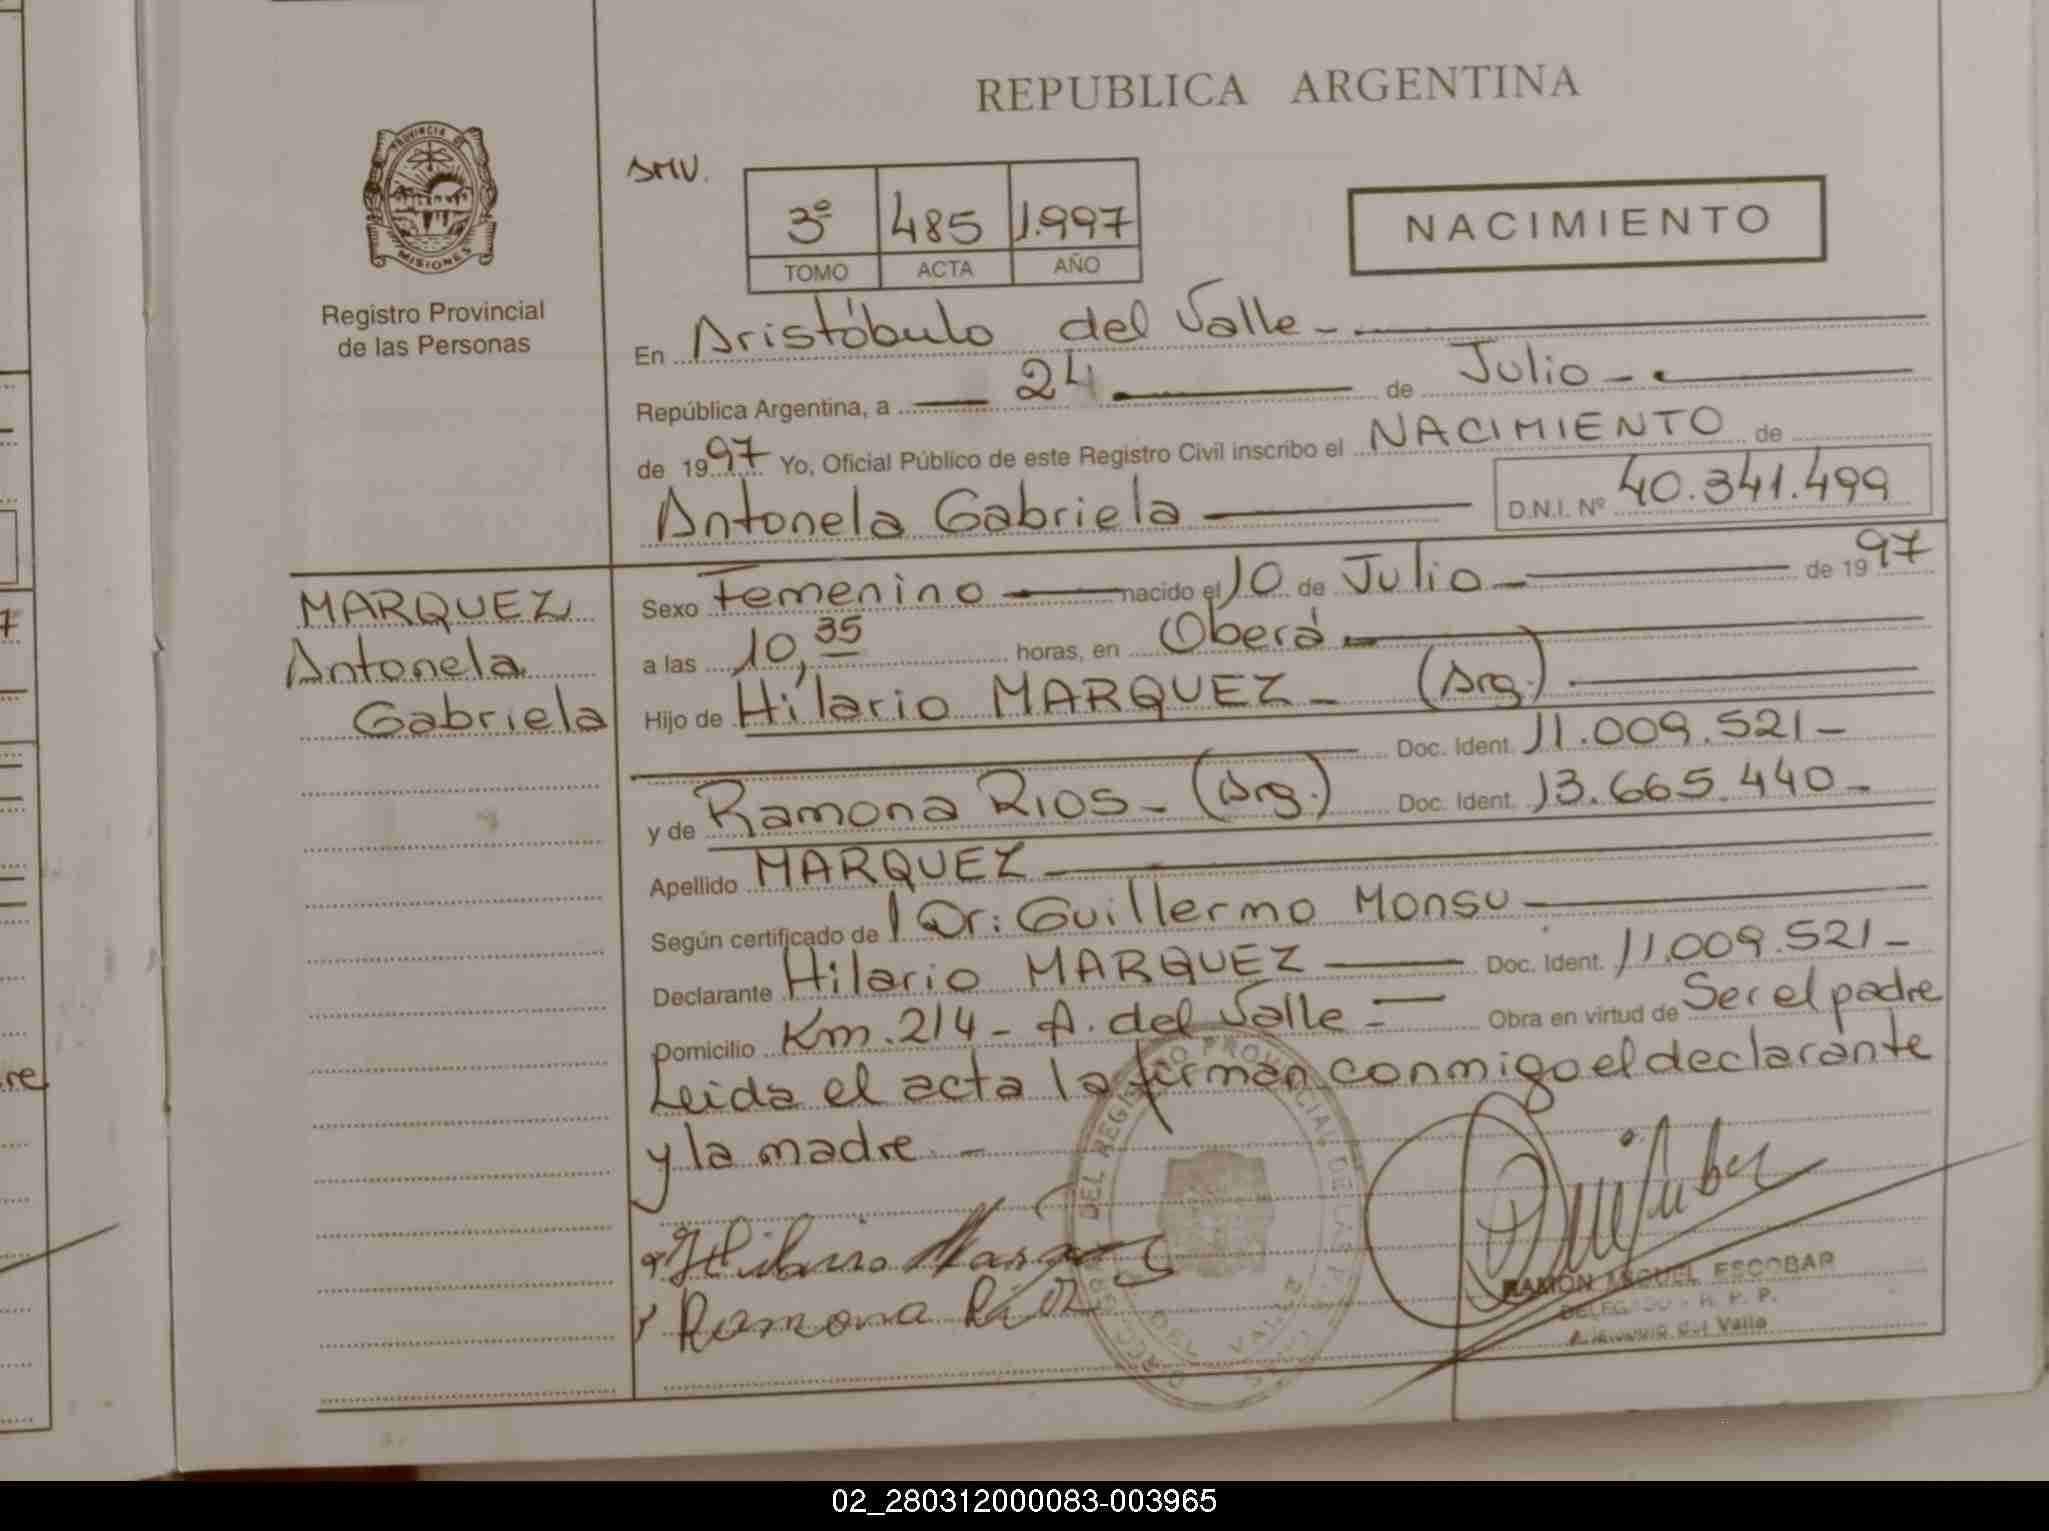 REPUBLICA ARGENTINA
PROVINCIA DE
MISIONES
Registro Provincial
de las Personas
AMV.
3º 485 1.997
TOMO ACTA AÑO
NACIMIENTO
En Aristóbulo del Valle -
República Argentina, a 24 de Julio -
de 1997 Yo, Oficial Público de este Registro Civil inscribo el NACIMIENTO de
Antonela Gabriela D.N.I. Nº 40.341.499
MARQUEZ
Antonela
Gabriela
Sexo Femenino nacido el 10 de Julio de 1997
a las 10,35 horas, en Oberá
Hijo de Hilario MARQUEZ - (Arg.)
Doc. Ident. 11.009.521-
y de Ramona RIOS - (Arg.) Doc. Ident. 13.665.440-
Apellido MARQUEZ
Según certificado de Dr: Guillermo Monsu
Declarante Hilario MARQUEZ Doc. Ident. 11.009.521-
Domicilio Km. 214 - A. del Valle - Obra en virtud de Ser el padre
Leida el acta la firman conmigo el declarante
y la madre -
Hilario Marquez
Ramona Rios
DEL REGISTRO PROVINCIAL DE LAS
DEL VALLE
RAMÓN MIGUEL ESCOBAR
DELEGADO - R. P. P.
Aristobulo del Valle
02_280312000083-003965